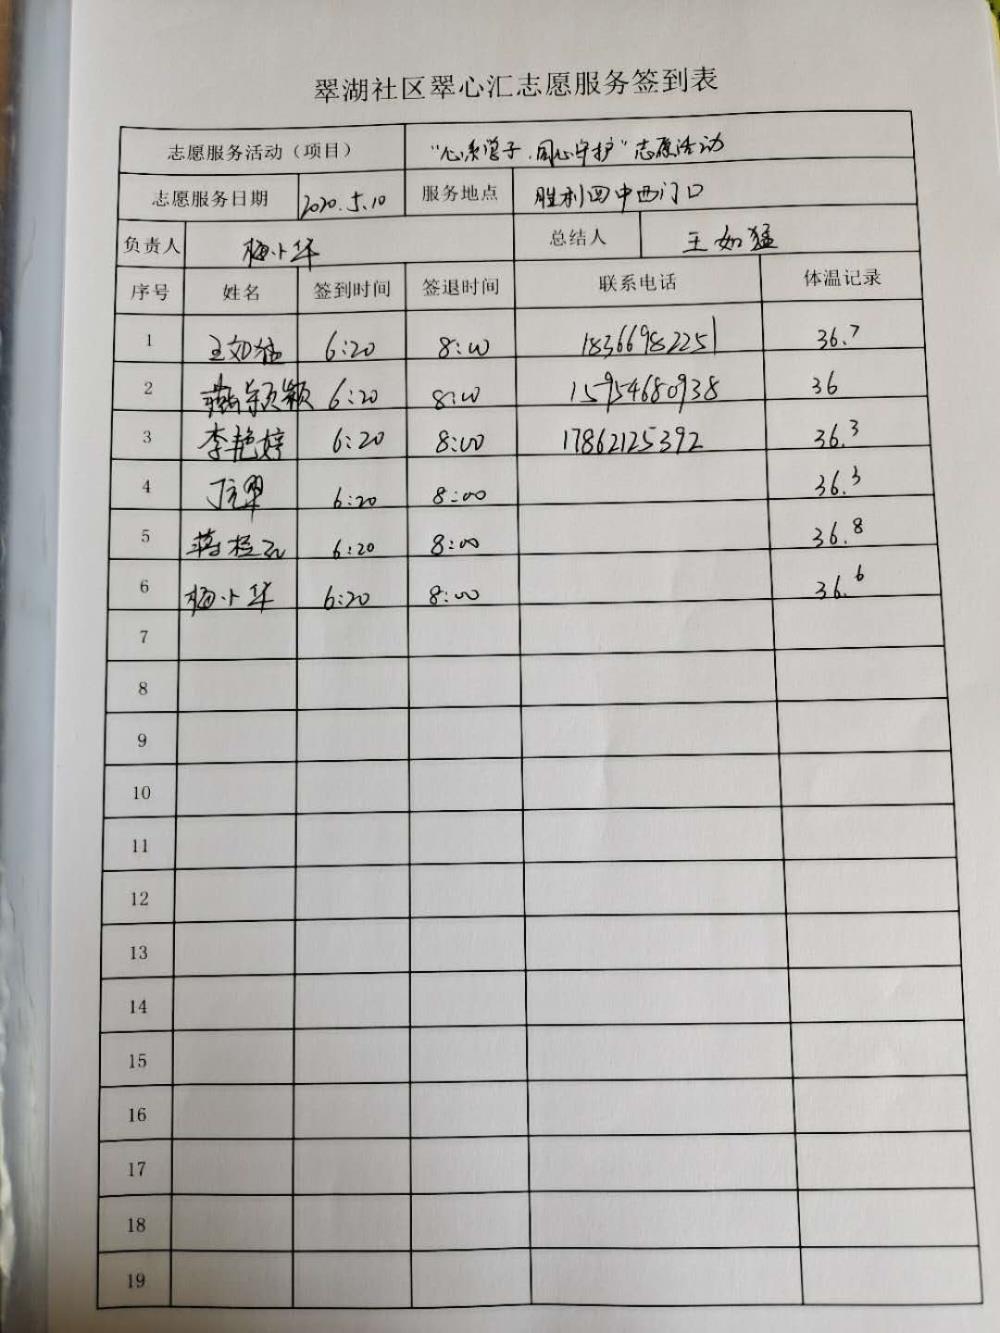 翠湖社区翠心汇志愿服务签到表
志愿服务活动（项目） “心系学子、同心守护”志愿活动
志愿服务日期 2020.5.10 服务地点 胜利四中西门口
负责人 梅小华 总结人 王如猛
序号 姓名 签到时间 签退时间 联系电话 体温记录
1 王如猛 6:20 8:00 18366982251 36.7
2 燕颖颖 6:20 8:00 15954680938 36
3 李艳婷 6:20 8:00 17862125392 36.3
4 6:20 8:00 36.3
5 6:20 8:00 36.8
6 梅小华 6:20 8:00 36.6
7
8
9
10
11
12
13
14
15
16
17
18
19